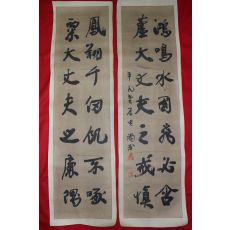 鴻鳴水國飛必含
蘆大丈夫之戒慎
鳳翔千仞飢不啄
粟大丈夫之廉隅